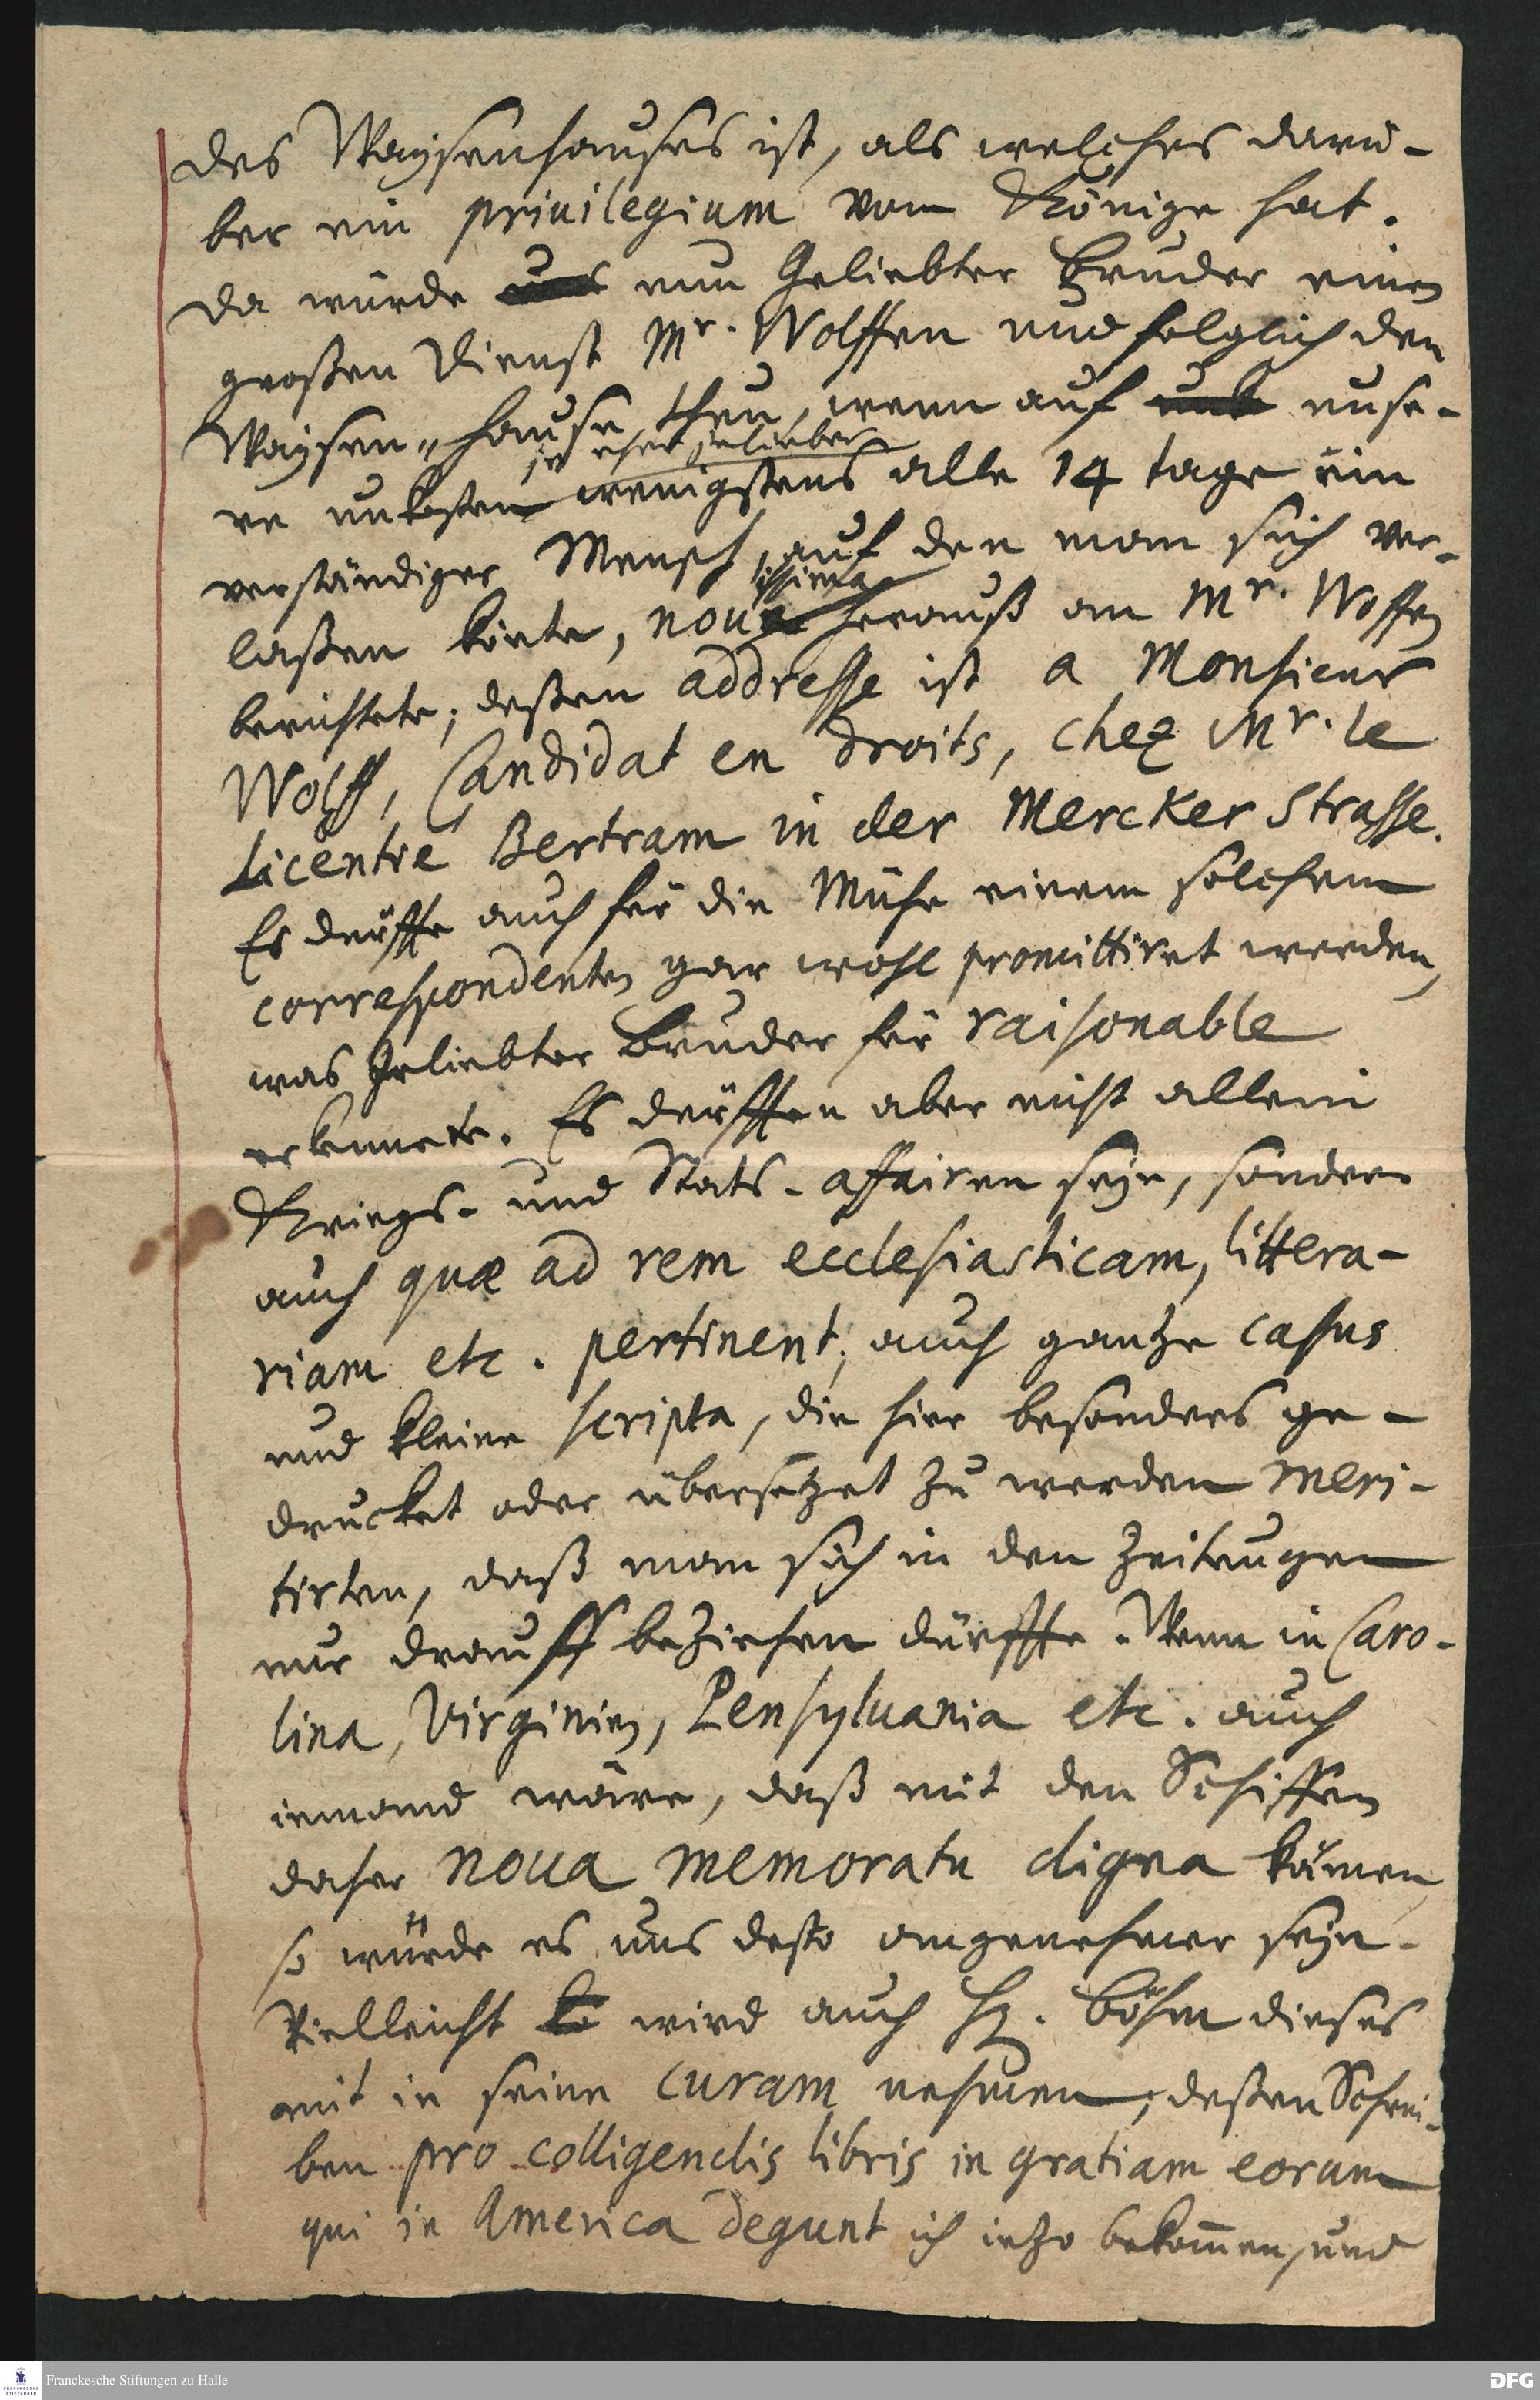 des Waysenhauses ist, als welches darü-
ber ein privilegium vom Könige hat.
Da würde nun Geliebter Bruder einen
großen Dienst Mr. Wolffen und folglich den
Waysen-hause thun, wenn auf unse-
re unkosten wenigstens alle 14 tage ein
je eher je lieber
verständiger Mensch, auf den man sich ver-
laßen könte, novissima herauß an Mr. Woffen
berichtete; deßen addresse ist a Monsieur
Wolff, Candidat en droits, chez Mr. le
Licentie Bertram in der Mercker Strasse.
Es dörffte auch für die Mühe einem solchem
correspondenten gar wohl promittiret werden,
was Geliebter Bruder für raisonable
erkennete. Es dörfften aber nicht allein
Kriegs- und Stats-affairen seyn, sondern
auch quæ ad rem ecclesiasticam, littera-
riam etc. pertinent; auch gantze casus
und kleine scripta, die hier besonders ge-
drucket oder übersetzet zu werden meri-
tirten, daß man sich in den Zeitungen
nur drauff beziehen dürffte. Wenn in Caro-
lina, Virginien, Pensylvania etc. auch
iemand wäre, daß mit den Schiffen
daher noua memoratu digna kämen
so würde es uns desto angenehmer seyn.
Vielleicht wird auch H. Böhm dieses
mit in seine curam nehmen, deßen Schrei-
ben pro colligendis libris in gratiam eorum
qui in America degunt ich ietzo bekom̄en, und
Franckesche Stiftungen zu Halle
DFG